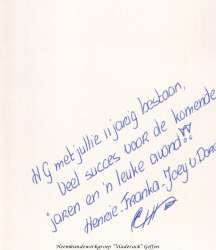 HG met jullie 11 jarig bestaan,
veel succes voor de komende
jaren en 'n leuke avond!!
Hennie - Franka - Joey v. Dora
Heemkundewerkgroep "Vladerack" Geffen